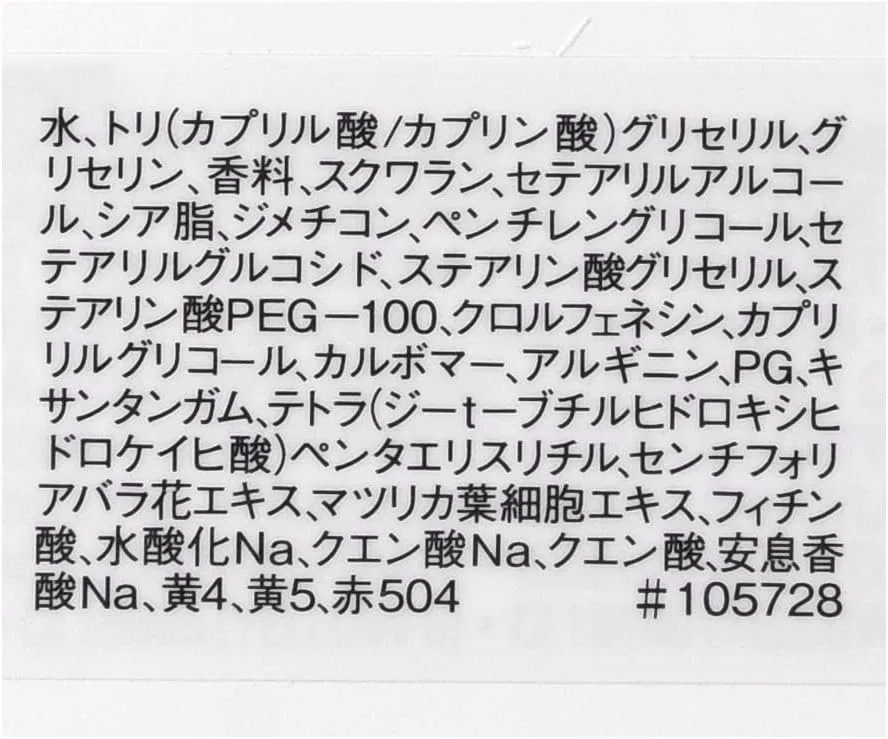 水、トリ(カプリル酸/カプリン酸)グリセリル、グ
リセリン、香料、スクワラン、セテアリルアルコー
ル、シア脂、ジメチコン、ペンチレングリコール、セ
テアリルグルコシド、ステアリン酸グリセリル、ス
テアリン酸PEG－100、クロルフェネシン、カプリ
リルグリコール、カルボマー、アルギニン、PG、キ
サンタンガム、テトラ(ジーtーブチルヒドロキシヒ
ドロケイヒ酸)ペンタエリスリチル、センチフォリ
アバラ花エキス、マツリカ葉細胞エキス、フィチン
酸、水酸化Na、クエン酸Na、クエン酸、安息香
酸Na、黄4、黄5、赤504 #105728